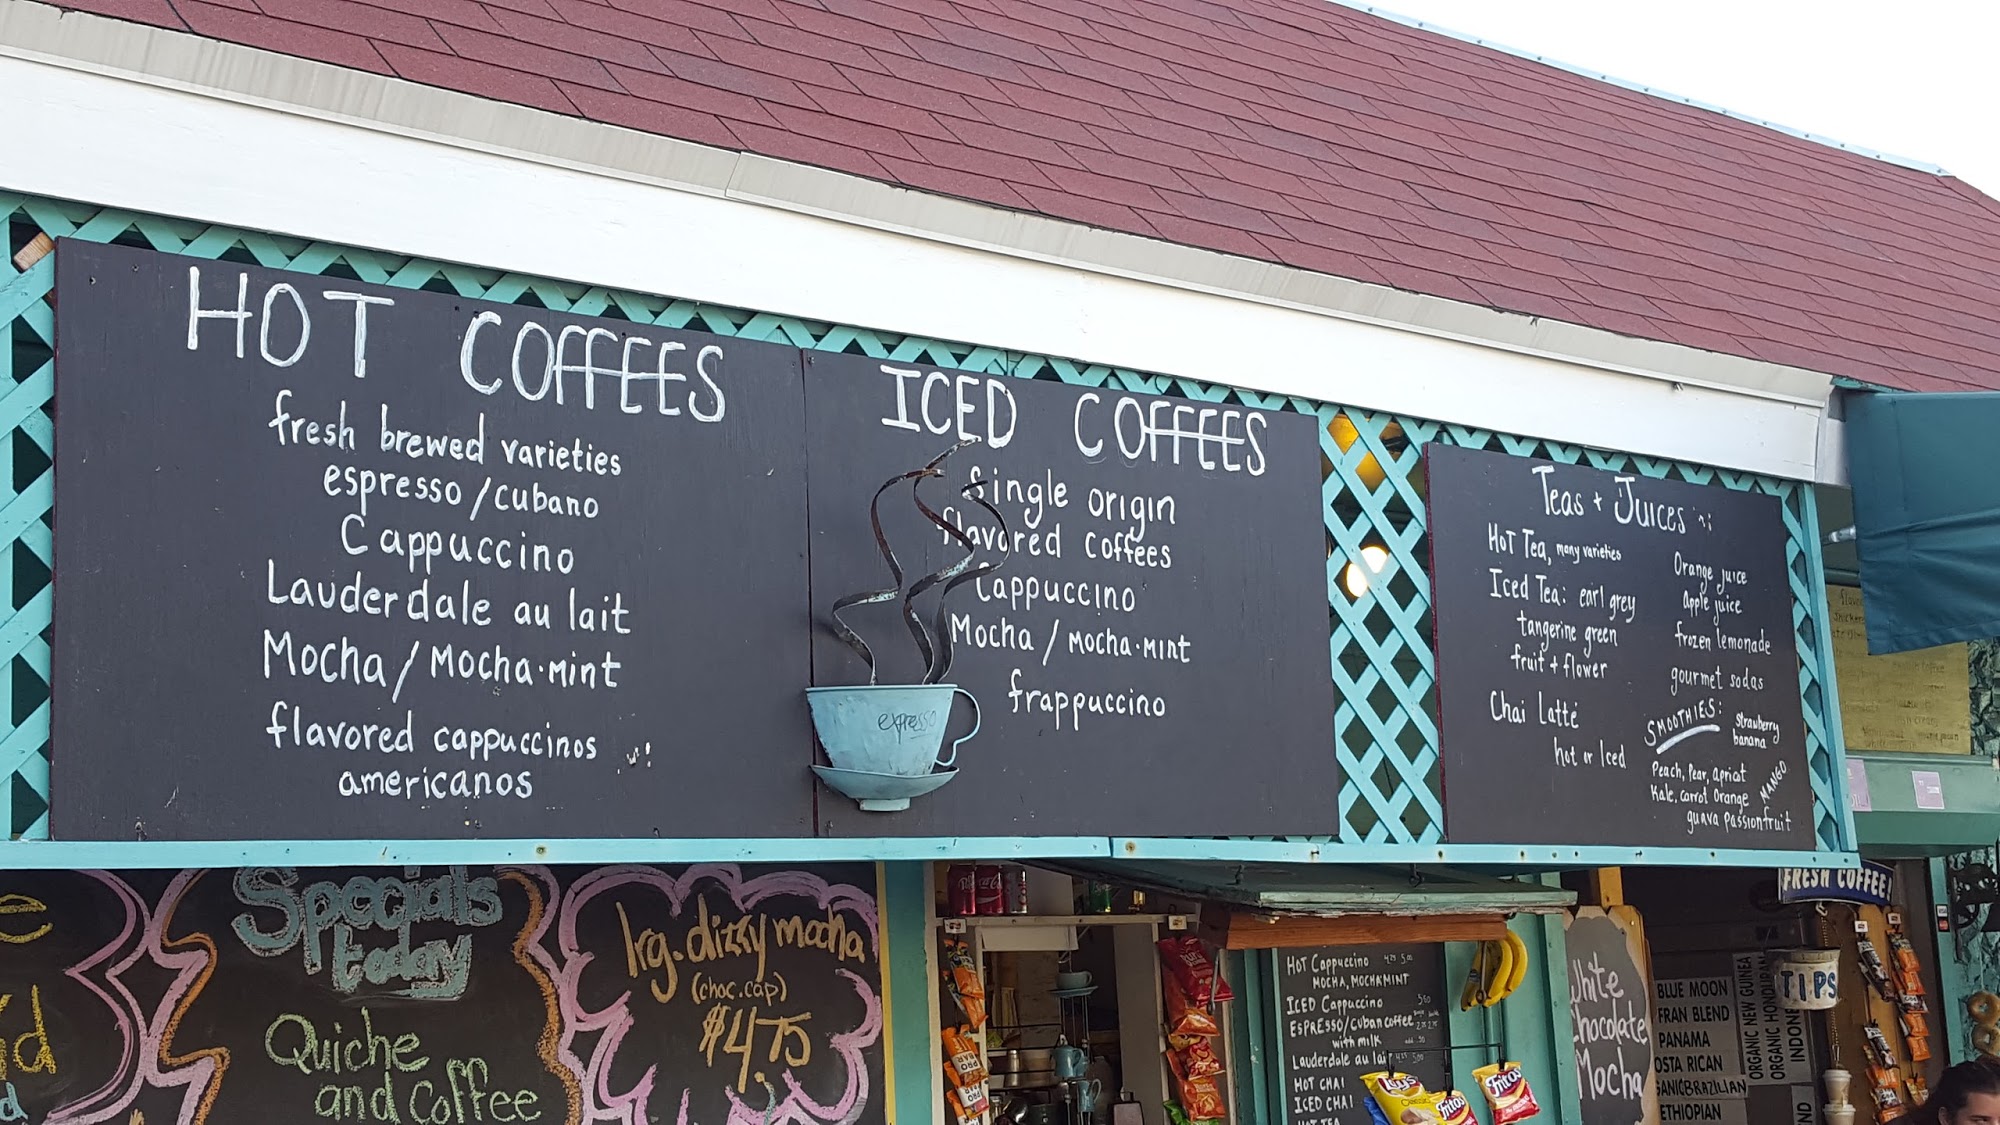 HOT COFFEES
fresh brewed varieties
espresso / cubano
Cappuccino
Lauderdale au lait
Mocha / Mocha·mint
flavored cappuccinos
americanos
ICED COFFEES
Single origin
flavored coffees
Cappuccino
Mocha / Mocha·mint
frappuccino
espresso
Teas + Juices
Hot Tea, many varieties
Iced Tea: earl grey
tangerine green
fruit + flower
Chai Latté
hot or Iced
Orange juice
Apple juice
frozen lemonade
gourmet sodas
SMOOTHIES:
strawberry
banana
Peach, Pear, apricot
Kale, carrot Orange
MANGO
guava passionfruit
Specials
today
Quiche
and Coffee
lrg. dizzy mocha
(choc. cap)
$4.75
HOT Cappuccino
MOCHA, MOCHA MINT
ICED Cappuccino
ESPRESSO/Cuban coffee
with milk
Lauderdale au lait
HOT CHAI
ICED CHAI
HOT TEA
Lay's
Fritos
Fritos
White
Chocolate
Mocha
FRESH COFFEE!
TIPS
BLUE MOON
FRAN BLEND
PANAMA
OSTA RICAN
BRAZILIAN
ETHIOPIAN
ORGANIC NEW GUINEA
ORGANIC HONDURAN
INDONE